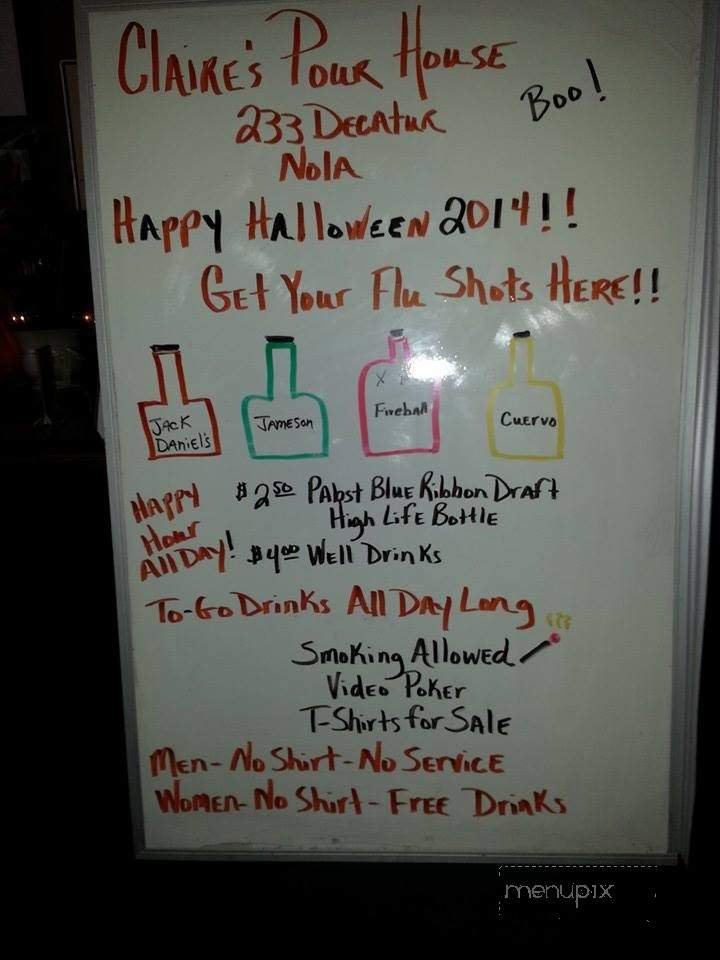 Claire's Pour House
Boo!
233 Decatur
Nola
Happy Halloween 2014!!
Get Your Flu Shots Here!!
Jack
Daniel's
Jameson
Fireball
Cuervo
Happy
Hour
All Day!
$2.50 Pabst Blue Ribbon Draft
High Life Bottle
$4.00 Well Drinks
To-Go Drinks All Day Long
Smoking Allowed
Video Poker
T-Shirts for Sale
Men-No Shirt-No Service
Women-No Shirt-Free Drinks
menupix